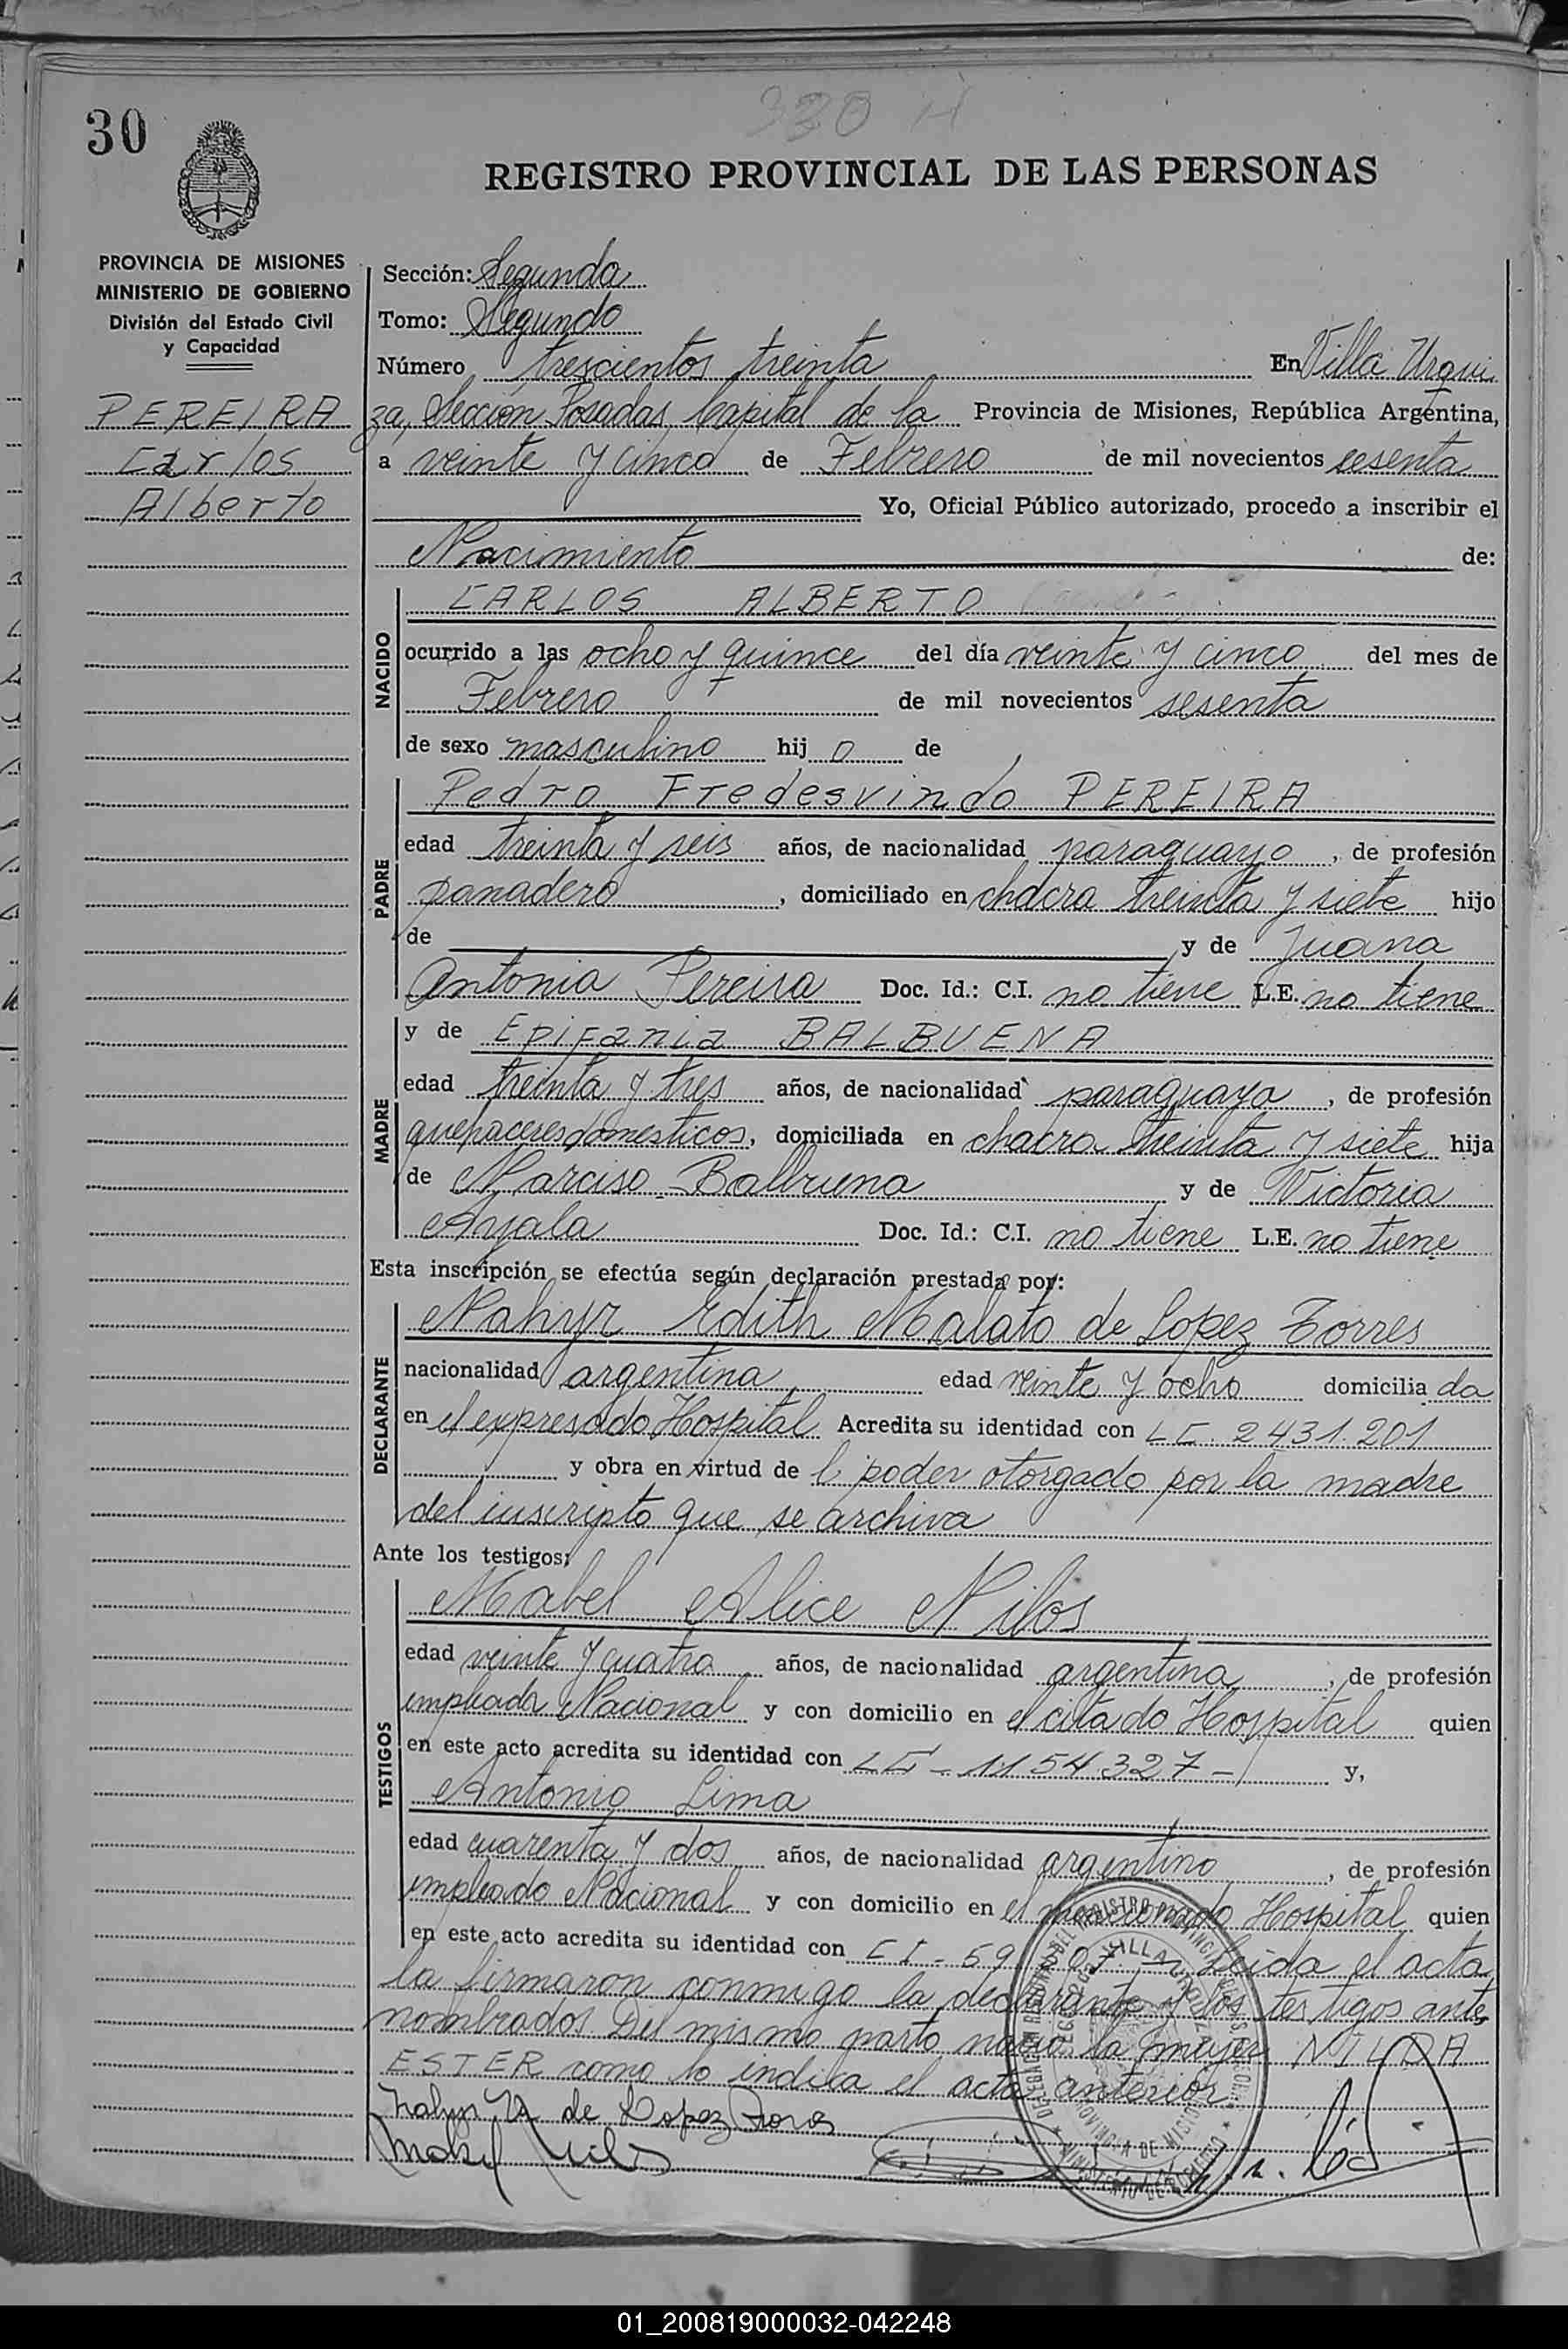 30
330 H
REGISTRO PROVINCIAL DE LAS PERSONAS
PROVINCIA DE MISIONES
MINISTERIO DE GOBIERNO
División del Estado Civil
y Capacidad
PEREIRA
Carlos
Alberto
Sección: Segunda
Tomo: Segundo
Número trescientos treinta En Villa Urqui
za, Sección Posadas, Capital de la Provincia de Misiones, República Argentina,
a veinte y cinco de Febrero de mil novecientos sesenta
Yo, Oficial Público autorizado, procedo a inscribir el
Nacimiento de:
NACIDO
CARLOS ALBERTO
ocurrido a las ocho y quince del día veinte y cinco del mes de
Febrero de mil novecientos sesenta
de sexo masculino hij o de
PADRE
Pedro Fredesvindo PEREIRA
edad treinta y seis años, de nacionalidad paraguayo, de profesión
panadero, domiciliado en chacra treinta y siete hijo
de y de Juana
Antonia Pereira Doc. Id.: C.I. no tiene L.E. no tiene
MADRE
y de Epifania BALBUENA
edad treinta y tres años, de nacionalidad paraguaya, de profesión
quehaceres domesticos, domiciliada en chacra treinta y siete hija
de Narciso Balbuena y de Victoria
Ayala Doc. Id.: C.I. no tiene L.E. no tiene
Esta inscripción se efectúa según declaración prestada por:
DECLARANTE
Nahyr Edith Malato de Lopez Torres
nacionalidad argentina edad veinte y ocho domicilia da
en el expresado Hospital Acredita su identidad con LC. 2431.201
y obra en virtud de l poder otorgado por la madre
del inscripto que se archiva
Ante los testigos:
TESTIGOS
Mabel Alice Nilos
edad veinte y cuatro años, de nacionalidad argentina, de profesión
empleada Nacional y con domicilio en el citado Hospital quien
en este acto acredita su identidad con LC - 1154.327 - y,
Antonio Lima
edad cuarenta y dos años, de nacionalidad argentino, de profesión
empleado Nacional y con domicilio en el mencionado Hospital quien
en este acto acredita su identidad con CI - 59 Leida el acta
la firmaron conmigo la declarante y los testigos ante
nombrados Del mismo parto nació la mujer NILDA
ESTER como lo indica el acta anterior
Nahyr M de Lopez Torres
Mabel Nilos
01_200819000032-042248